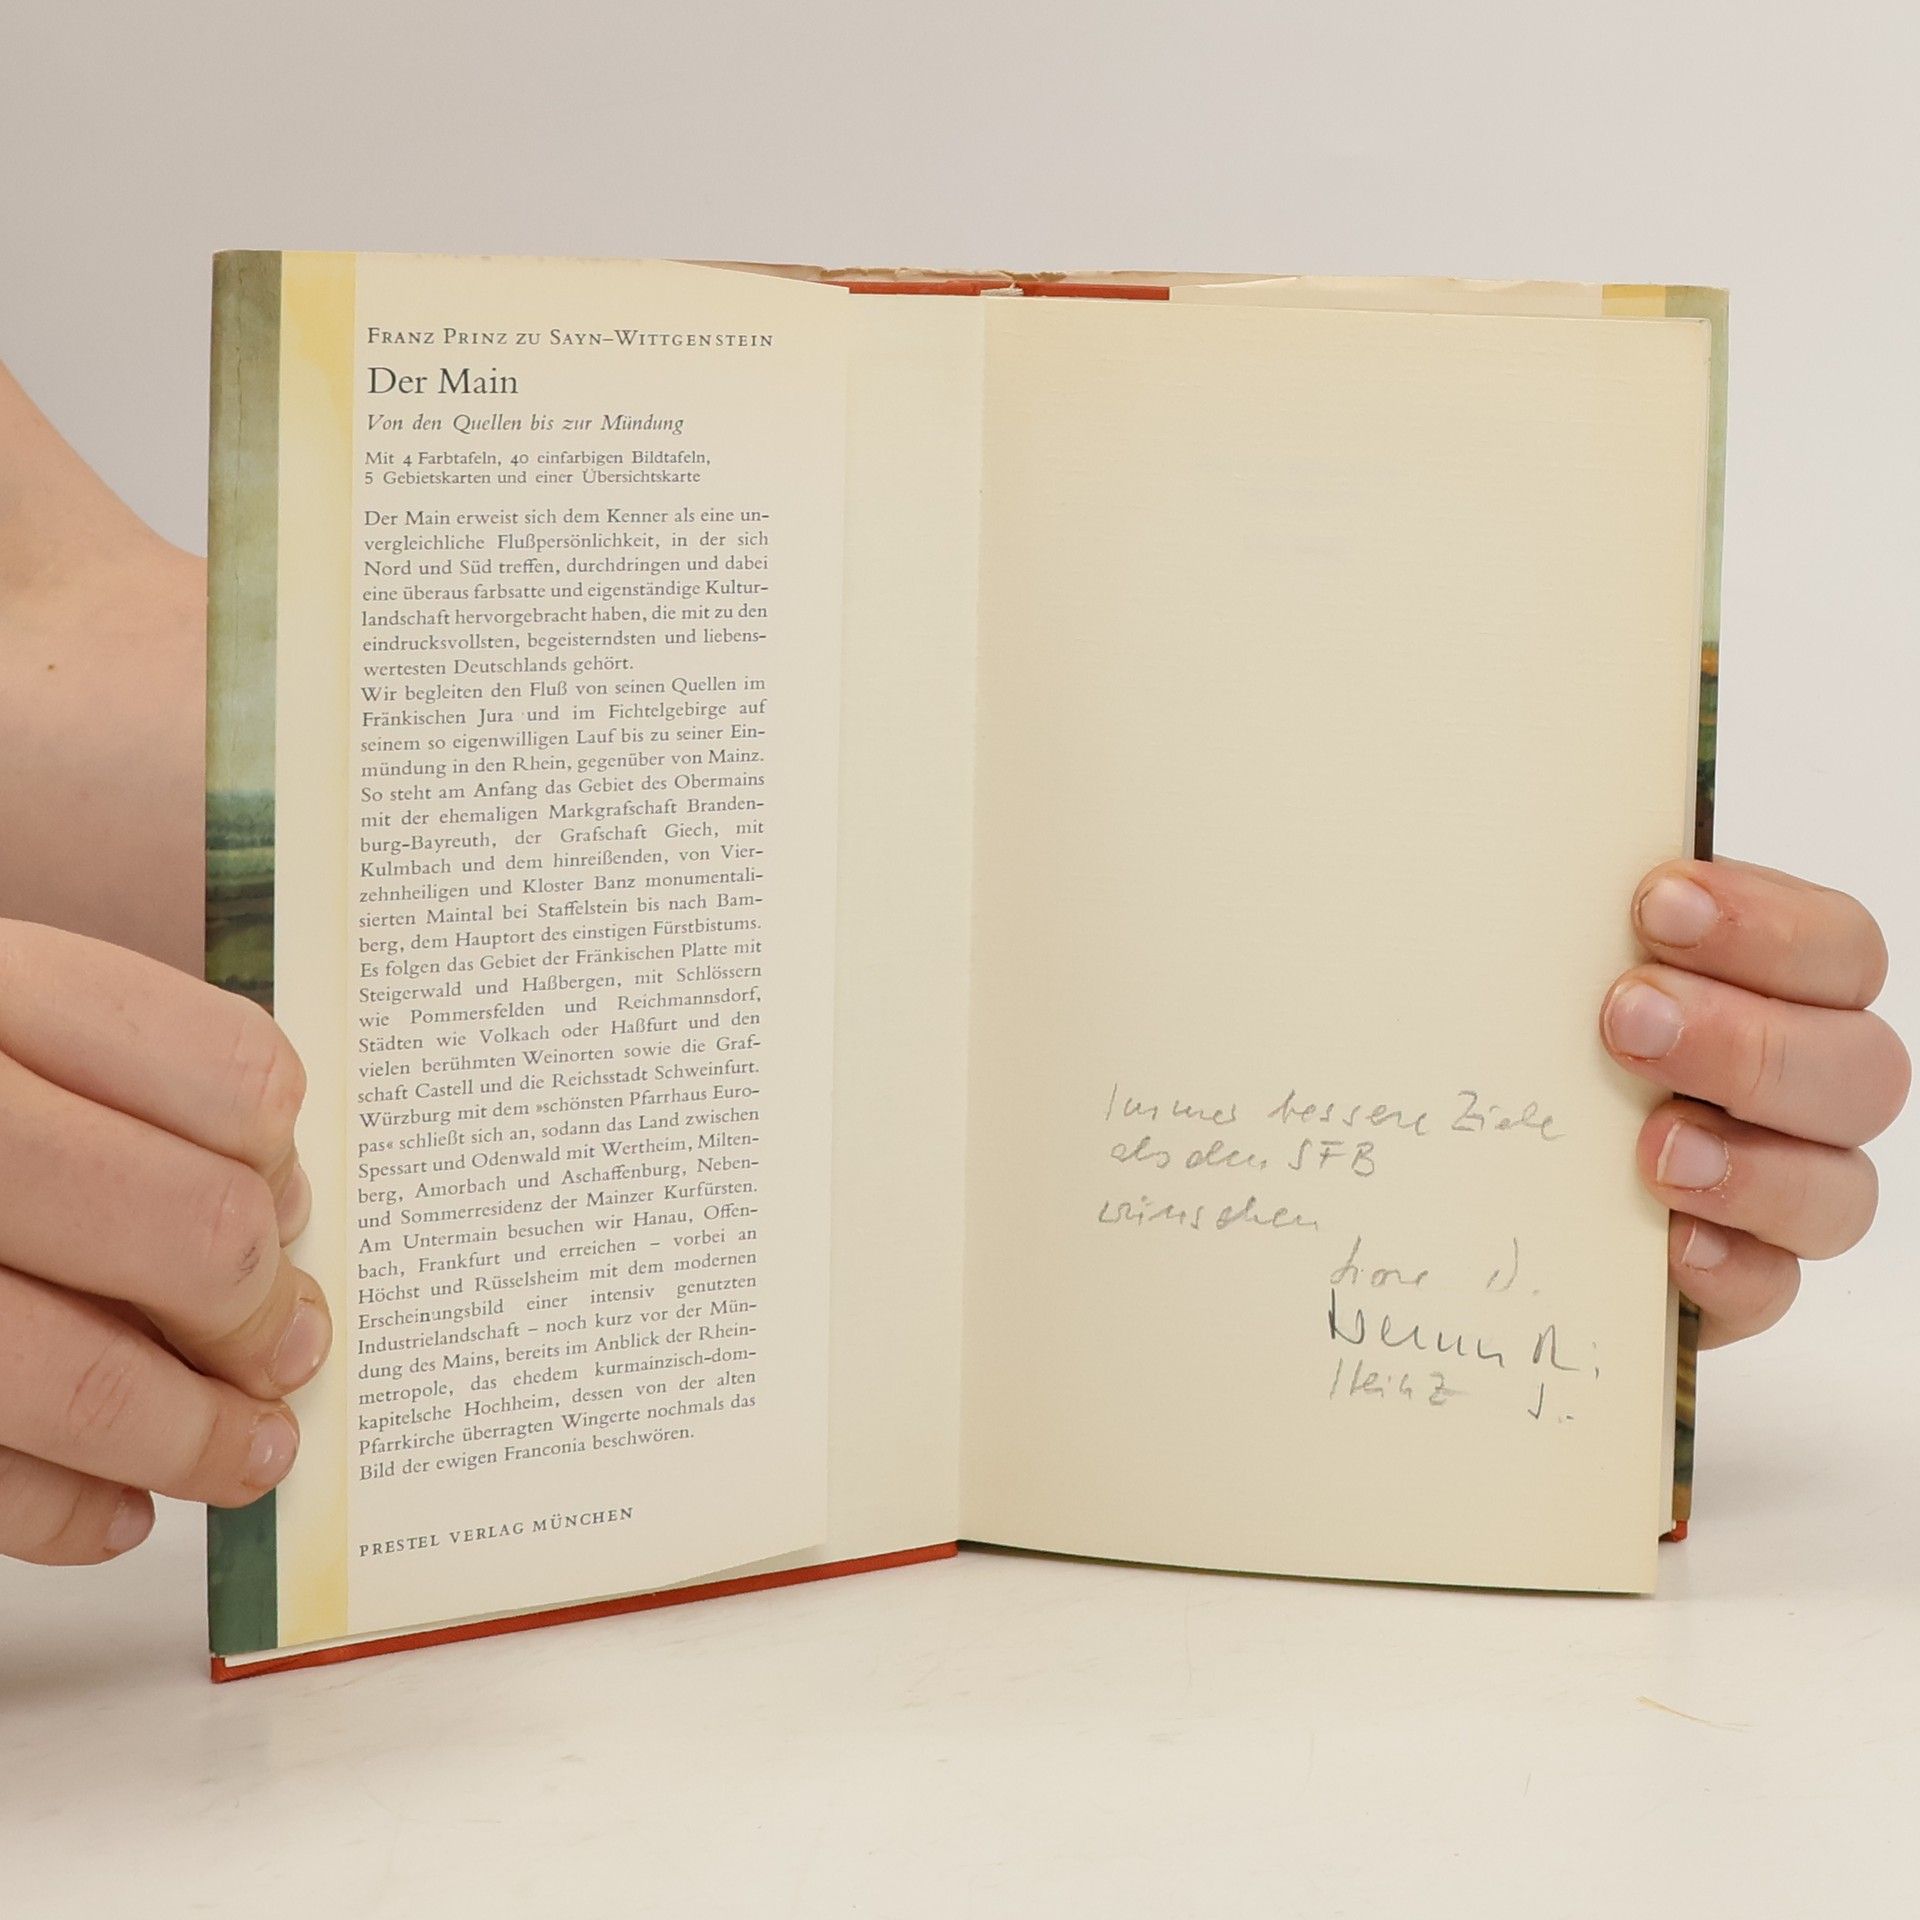 FRANZ PRINZ ZU SAYN–WITTGENSTEIN
Der Main
Von den Quellen bis zur Mündung
Mit 4 Farbtafeln, 40 einfarbigen Bildtafeln,
5 Gebietskarten und einer Übersichtskarte
Der Main erweist sich dem Kenner als eine un-
vergleichliche Flußpersönlichkeit, in der sich
Nord und Süd treffen, durchdringen und dabei
eine überaus farbsatte und eigenständige Kultur-
landschaft hervorgebracht haben, die mit zu den
eindrucksvollsten, begeisterndsten und liebens-
wertesten Deutschlands gehört.
Wir begleiten den Fluß von seinen Quellen im
Fränkischen Jura und im Fichtelgebirge auf
seinem so eigenwilligen Lauf bis zu seiner Ein-
mündung in den Rhein, gegenüber von Mainz.
So steht am Anfang das Gebiet des Obermains
mit der ehemaligen Markgrafschaft Branden-
burg-Bayreuth, der Grafschaft Giech, mit
Kulmbach und dem hinreißenden, von Vier-
zehnheiligen und Kloster Banz monumentali-
sierten Maintal bei Staffelstein bis nach Bam-
berg, dem Hauptort des einstigen Fürstbistums.
Es folgen das Gebiet der Fränkischen Platte mit
Steigerwald und Haßbergen, mit Schlössern
wie Pommersfelden und Reichmannsdorf,
Städten wie Volkach oder Haßfurt und den
vielen berühmten Weinorten sowie die Graf-
schaft Castell und die Reichsstadt Schweinfurt.
Würzburg mit dem »schönsten Pfarrhaus Euro-
pas« schließt sich an, sodann das Land zwischen
Spessart und Odenwald mit Wertheim, Milten-
berg, Amorbach und Aschaffenburg, Neben-
und Sommerresidenz der Mainzer Kurfürsten.
Am Untermain besuchen wir Hanau, Offen-
bach, Frankfurt und erreichen – vorbei an
Höchst und Rüsselsheim mit dem modernen
Erscheinungsbild einer intensiv genutzten
Industrielandschaft – noch kurz vor der Mün-
dung des Mains, bereits im Anblick der Rhein-
metropole, das ehedem kurmainzisch-dom-
kapitelsche Hochheim, dessen von der alten
Pfarrkirche überragten Wingerte nochmals das
Bild der ewigen Franconia beschwören.
PRESTEL VERLAG MÜNCHEN
Immer bessere Ziele
als den SFB
wünschen
Heinz J.